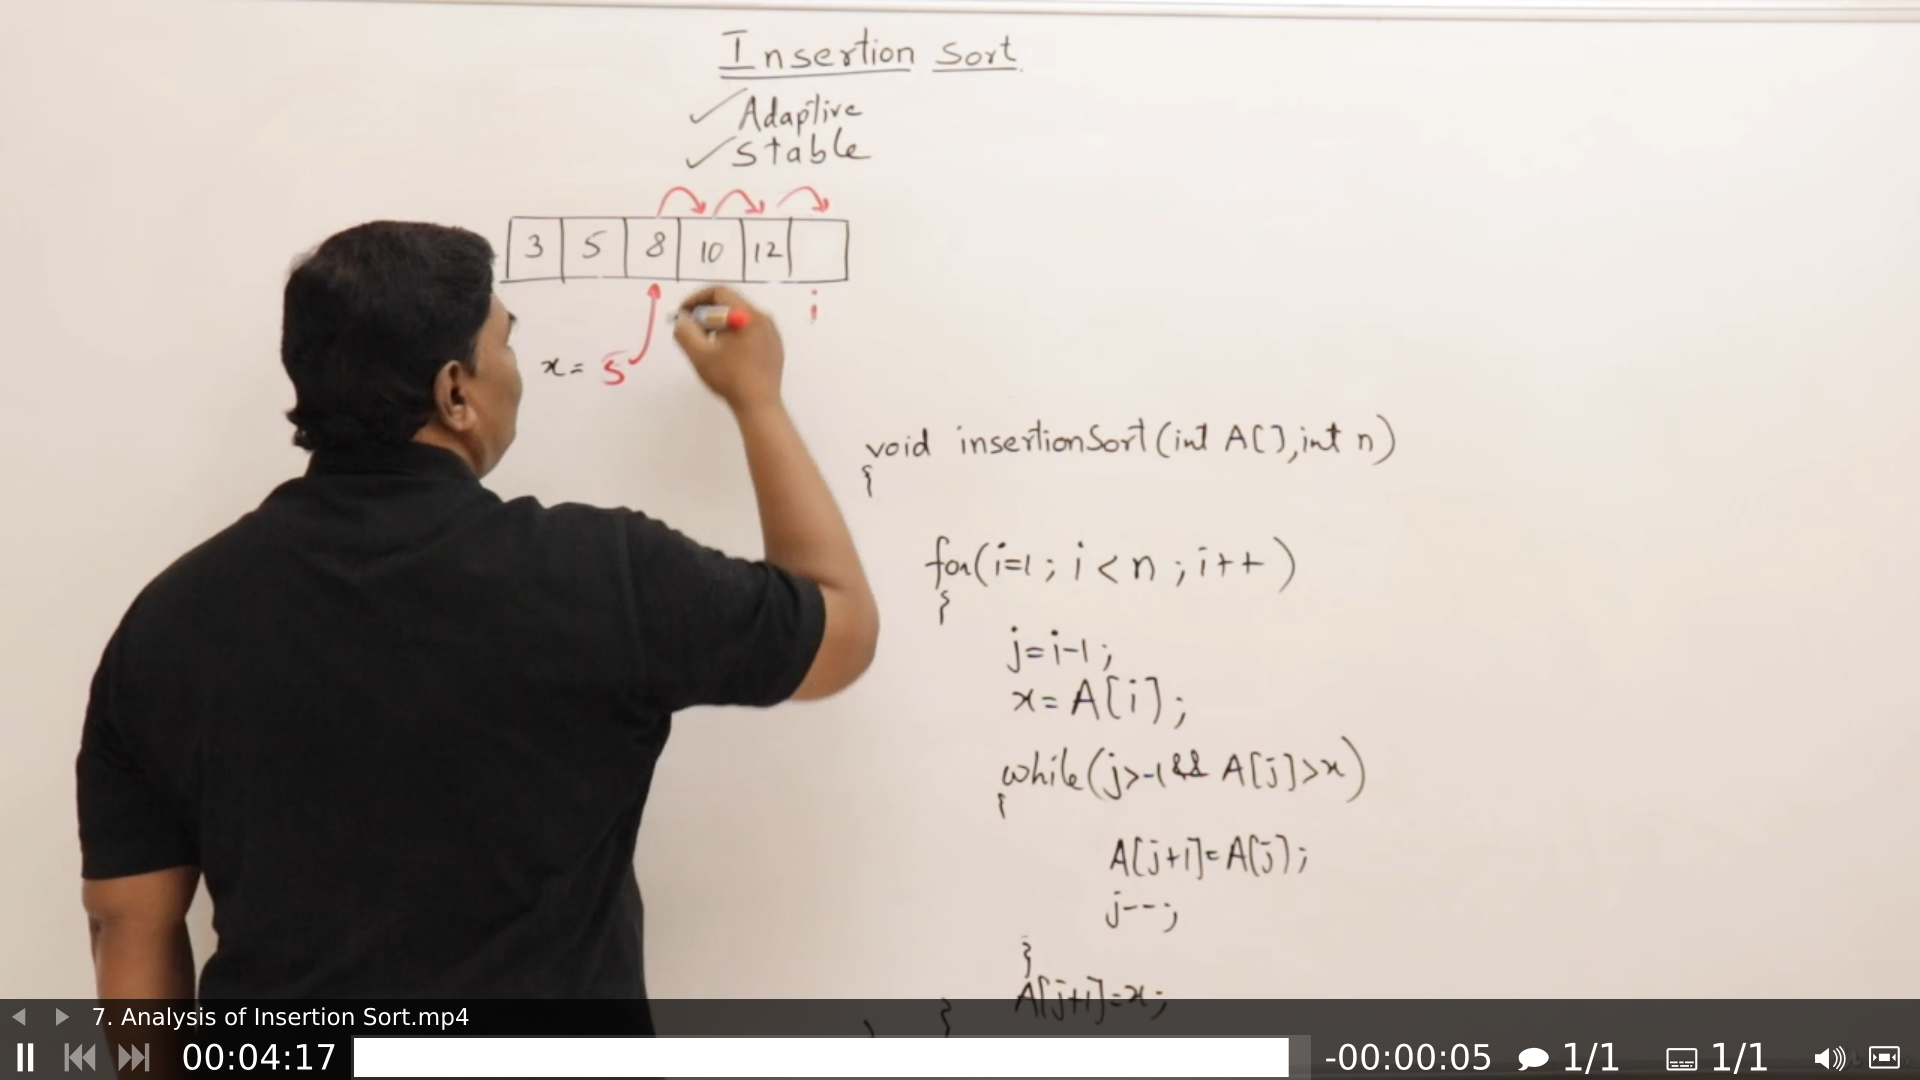 Insertion Sort.
Adaptive
Stable
3 5 8 10 12
i
x = 5
void insertionSort(int A[], int n)
{
for(i=1; i<n; i++)
{
j=i-1;
x=A[i];
while(j>-1 && A[j]>x)
{
A[j+1]=A[j];
j--;
}
A[j+1]=x;
}
7. Analysis of Insertion Sort.mp4
00:04:17 -00:00:05 1/1 1/1